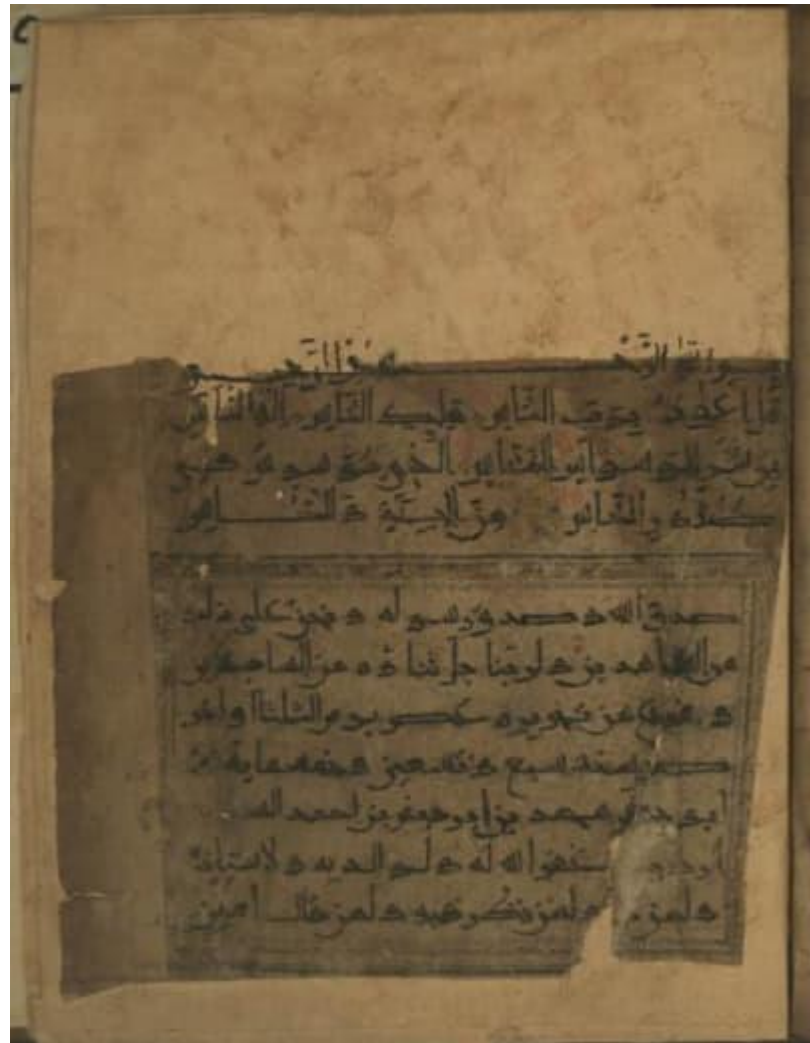 بسم الله الرحمن الرحيم
قل اعوذ برب الناس ملك الناس اله الناس
من شر الوسواس الخناس الذي يوسوس في
صدور الناس من الجنة و الناس
صدق الله و صدق رسوله و نحن على ذلك
من الشاهدين و لربنا جل ثناؤه من الساجدين
و فرغ من تحريره عصر يوم الثلثا اواخر
صفر سنة سبع و تسعين و خمسماية
ابو محمد بن ابي جعفر بن احمد
غفر الله له و لوالديه و لاستاذيه
و لمن و لمن نظر فيه و لمن قال امين